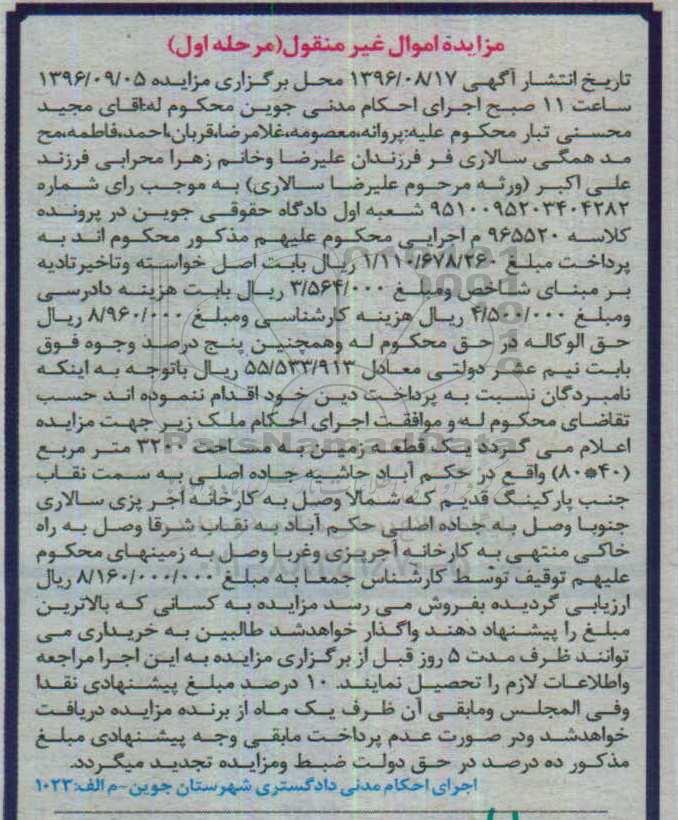 مزایده اموال غیر منقول(مرحله اول)
تاریخ انتشار آگهی ۱۳۹۶/۰۸/۱۷ محل برگزاری مزایده ۱۳۹۶/۰۹/۰۵
ساعت ۱۱ صبح اجرای احکام مدنی جوین محکوم له:آقای مجید
محسنی تبار محکوم علیه:پروانه،معصومه،غلامرضا،قربان،احمد،فاطمه،مح
مد همگی سالاری فر فرزندان علیرضا وخانم زهرا محرابی فرزند
علی اکبر (ورثه مرحوم علیرضا سالاری) به موجب رای شماره
۹۵۱۰۰۹۵۲۰۳۴۰۴۲۸۲ شعبه اول دادگاه حقوقی جوین در پرونده
کلاسه ۹۶۵۵۲۰ م اجرایی محکوم علیهم مذکور محکوم اند به
پرداخت مبلغ ۱/۱۱۰/۶۷۸/۲۶۰ ریال بابت اصل خواسته وتاخیرتادیه
بر مبنای شاخص ومبلغ ۳/۵۶۴/۰۰۰ ریال بابت هزینه دادرسی
ومبلغ ۴/۵۰۰/۰۰۰ ریال هزینه کارشناسی ومبلغ ۸/۹۶۰/۰۰۰ ریال
حق الوکاله در حق محکوم له وهمچنین پنج درصد وجوه فوق
بابت نیم عشر دولتی معادل ۵۵/۵۳۳/۹۱۳ ریال باتوجه به اینکه
نامبردگان نسبت به پرداخت دین خود اقدام ننموده اند حسب
تقاضای محکوم له و موافقت اجرای احکام ملک زیر جهت مزایده
اعلام می گردد یک قطعه زمین به مساحت ۳۲۰۰ متر مربع
(۴۰*۸۰) واقع در حکم آباد حاشیه جاده اصلی به سمت نقاب
جنب پارکینگ قدیم که شمالا وصل به کارخانه آجر پزی سالاری
جنوبا وصل به جاده اصلی حکم آباد به نقاب شرقا وصل به راه
خاکی منتهی به کارخانه آجرپزی وغربا وصل به زمینهای محکوم
علیهم توقیف توسط کارشناس جمعا به مبلغ ۸/۱۶۰/۰۰۰/۰۰۰ ریال
ارزیابی گردیده بفروش می رسد مزایده به کسانی که بالاترین
مبلغ را پیشنهاد دهند واگذار خواهدشد طالبین به خریداری می
توانند ظرف مدت ۵ روز قبل از برگزاری مزایده به این اجرا مراجعه
واطلاعات لازم را تحصیل نمایند. ۱۰ درصد مبلغ پیشنهادی نقدا
وفی المجلس ومابقی آن ظرف یک ماه از برنده مزایده دریافت
خواهدشد ودر صورت عدم پرداخت مابقی وجه پیشنهادی مبلغ
مذکور ده درصد در حق دولت ضبط ومزایده تجدید میگردد.
اجرای احکام مدنی دادگستری شهرستان جوین-م الف:۱۰۲۳
ParsNamadData